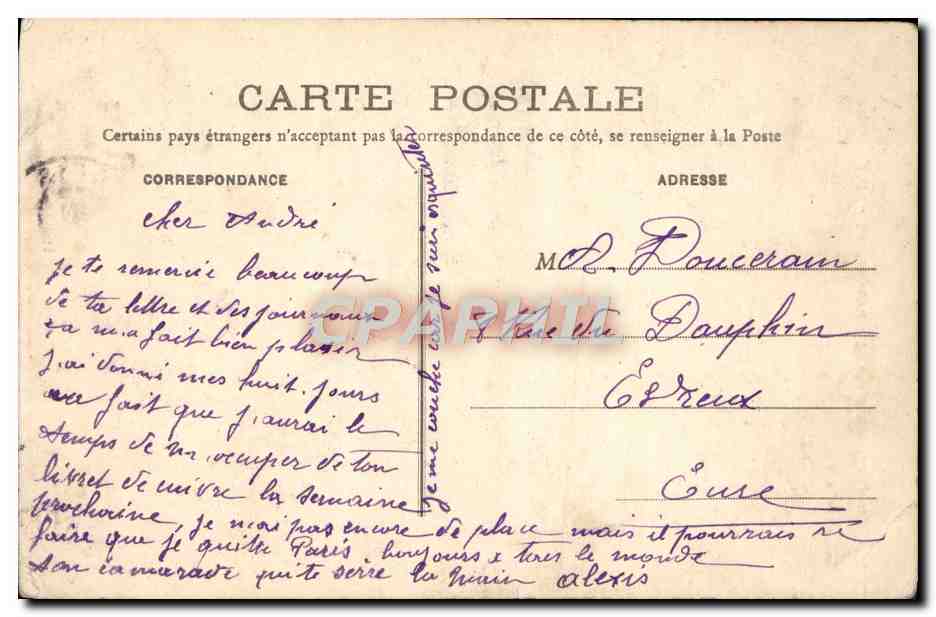 CARTE POSTALE
Certains pays étrangers n'acceptent pas la correspondance de ce côté, se renseigner à la Poste
CORRESPONDANCE
cher André
je te remercie beaucoup
de ta lettre et des journaux
sa m,a fait bien plaisir
j,ai donné mes huit jours
fait que j,aurai le
temps de m,ocuper de ton
livret de cuivre la semaine
prochaine, je n,ai pas encore de place mais il pourrais se
faire que je quitte Paris. bonjours a tous le monde
ton camarade qui te serre la main alexis
je me couche car je suis esquinter
ADRESSE
M A. Douceram
Rue du Dauphin
Evreux
Eure
CPARHIL